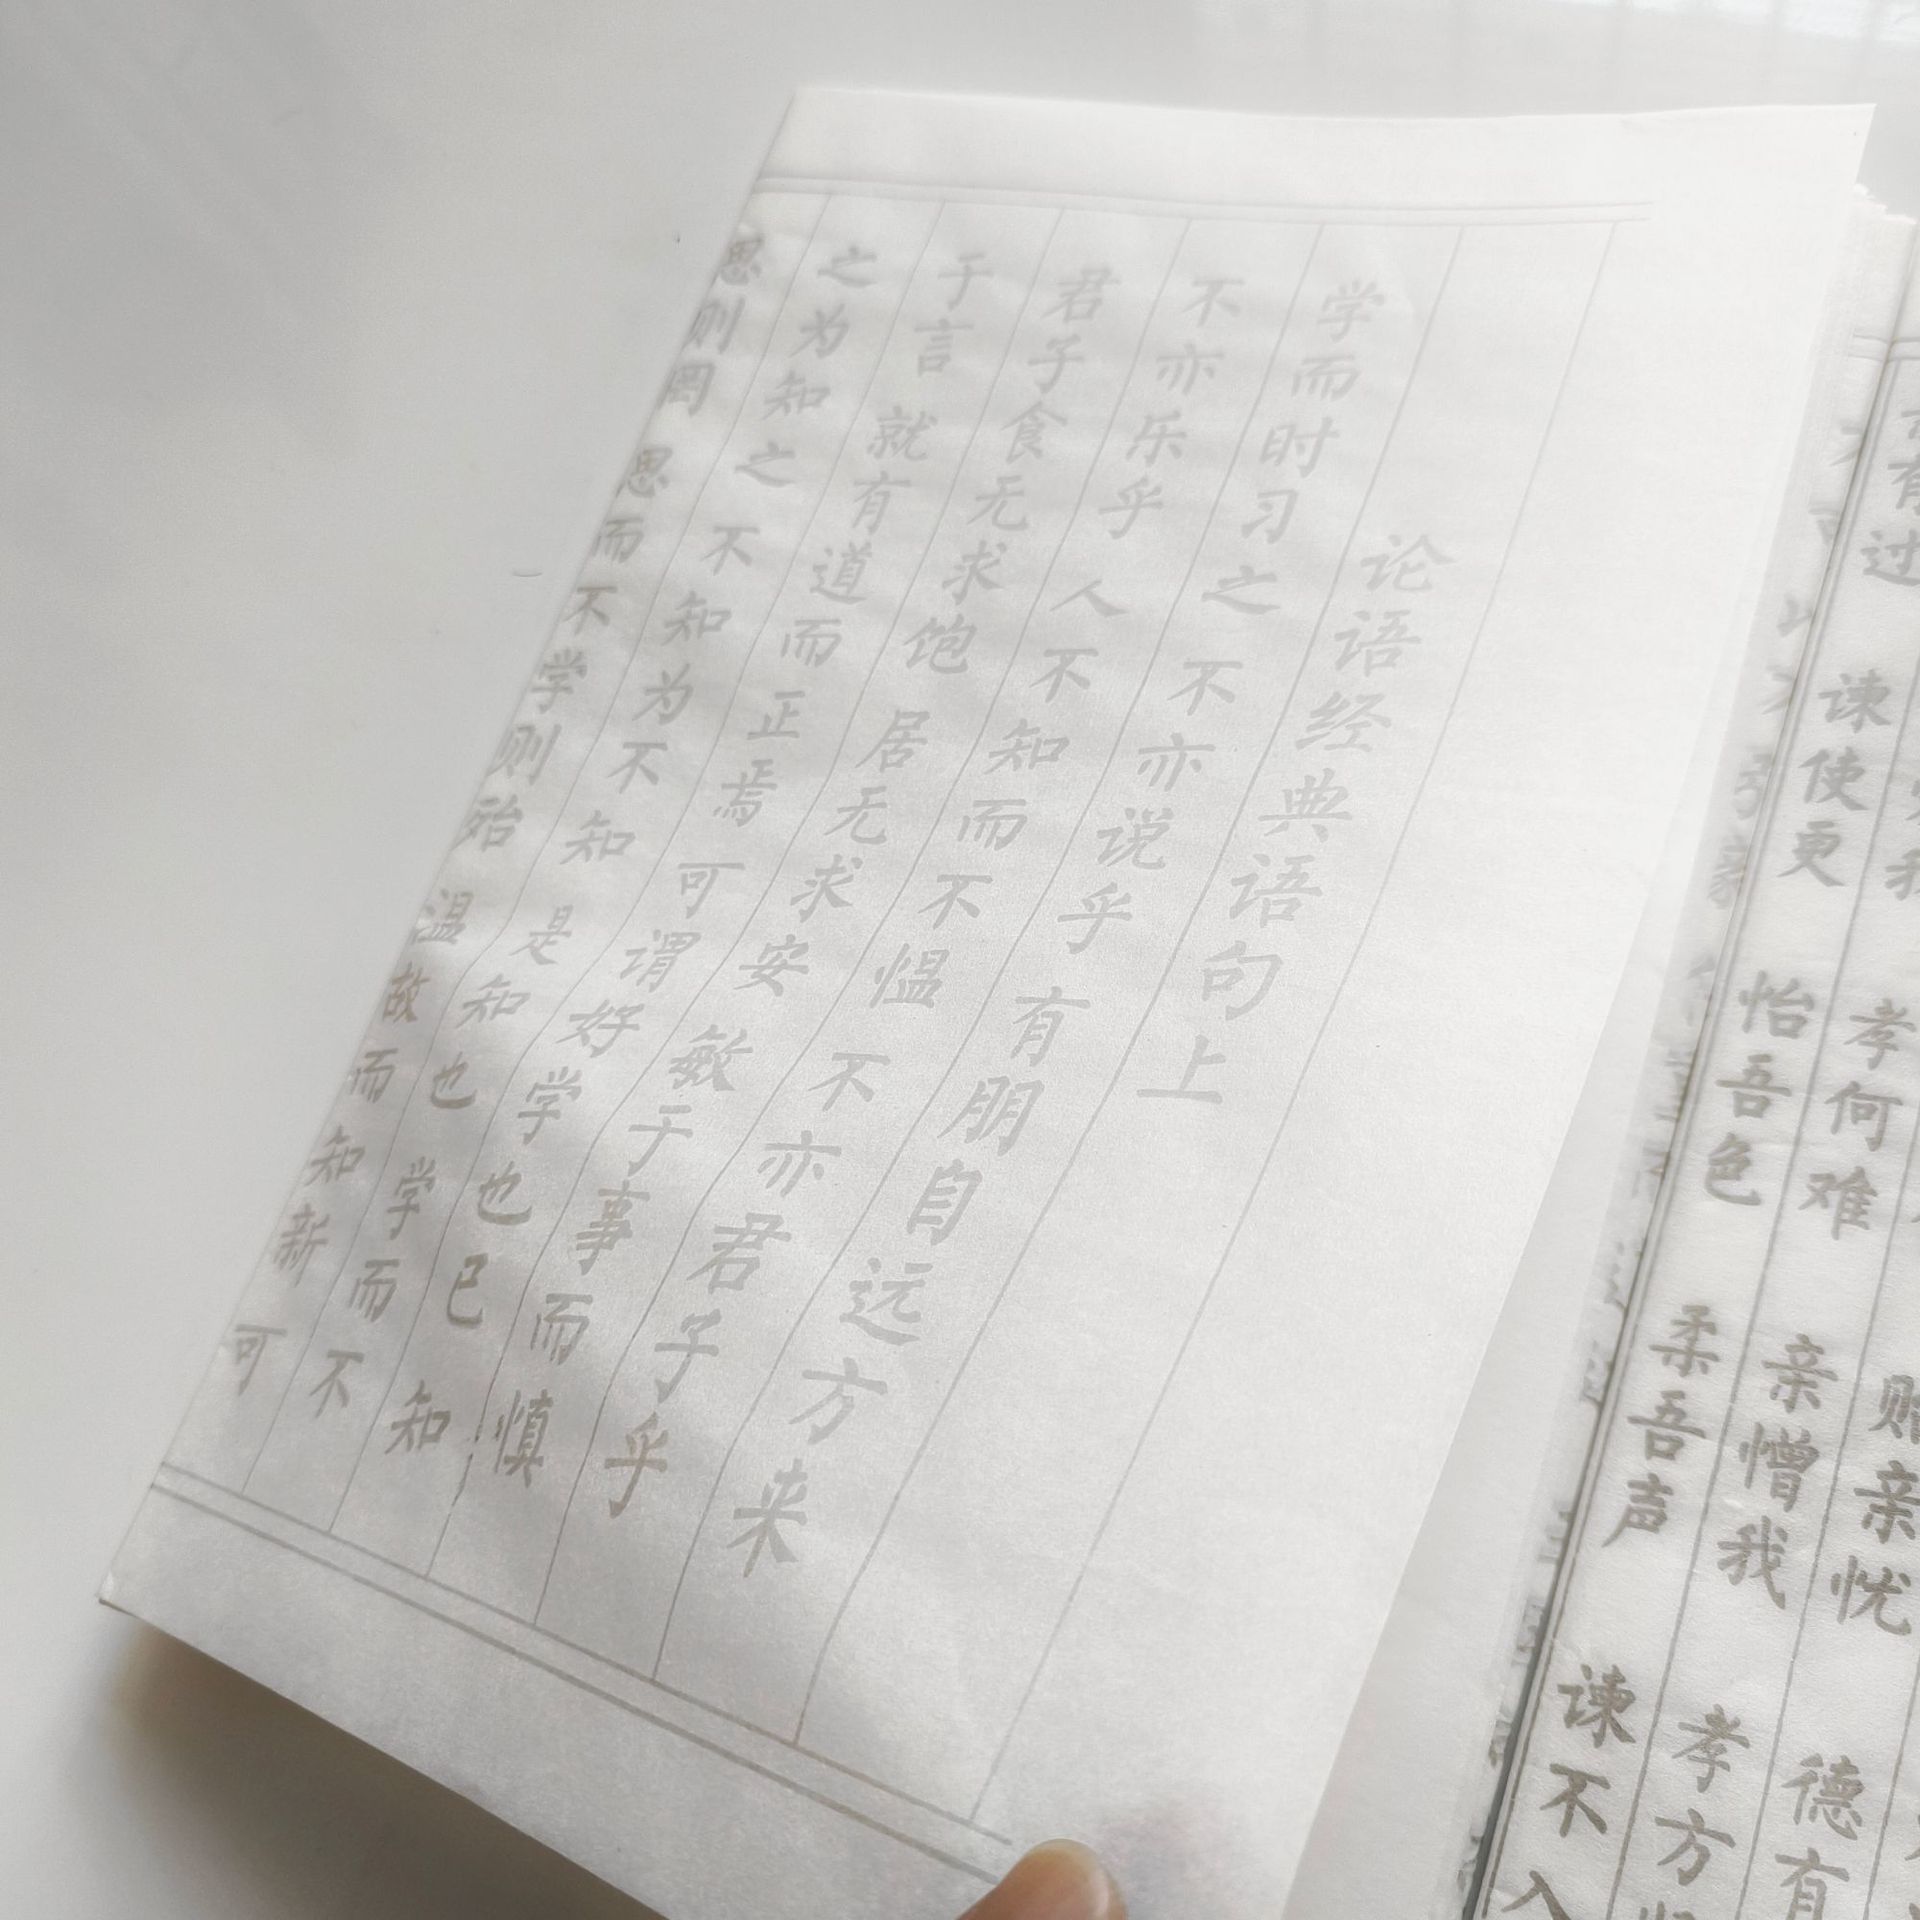 贻亲忧 德有
我 孝何难 亲憎我 孝方
有过 谏使更 怡吾色 柔吾声 谏不入
论语经典语句上
学而时习之 不亦说乎 有朋自远方来
不亦乐乎 人不知而不愠 不亦君子乎
君子食无求饱 居无求安 敏于事而慎
于言 就有道而正焉 可谓好学也已 知
之为知之 不知为不知 是知也 学而不
思则罔 思而不学则殆 温故而知新 可